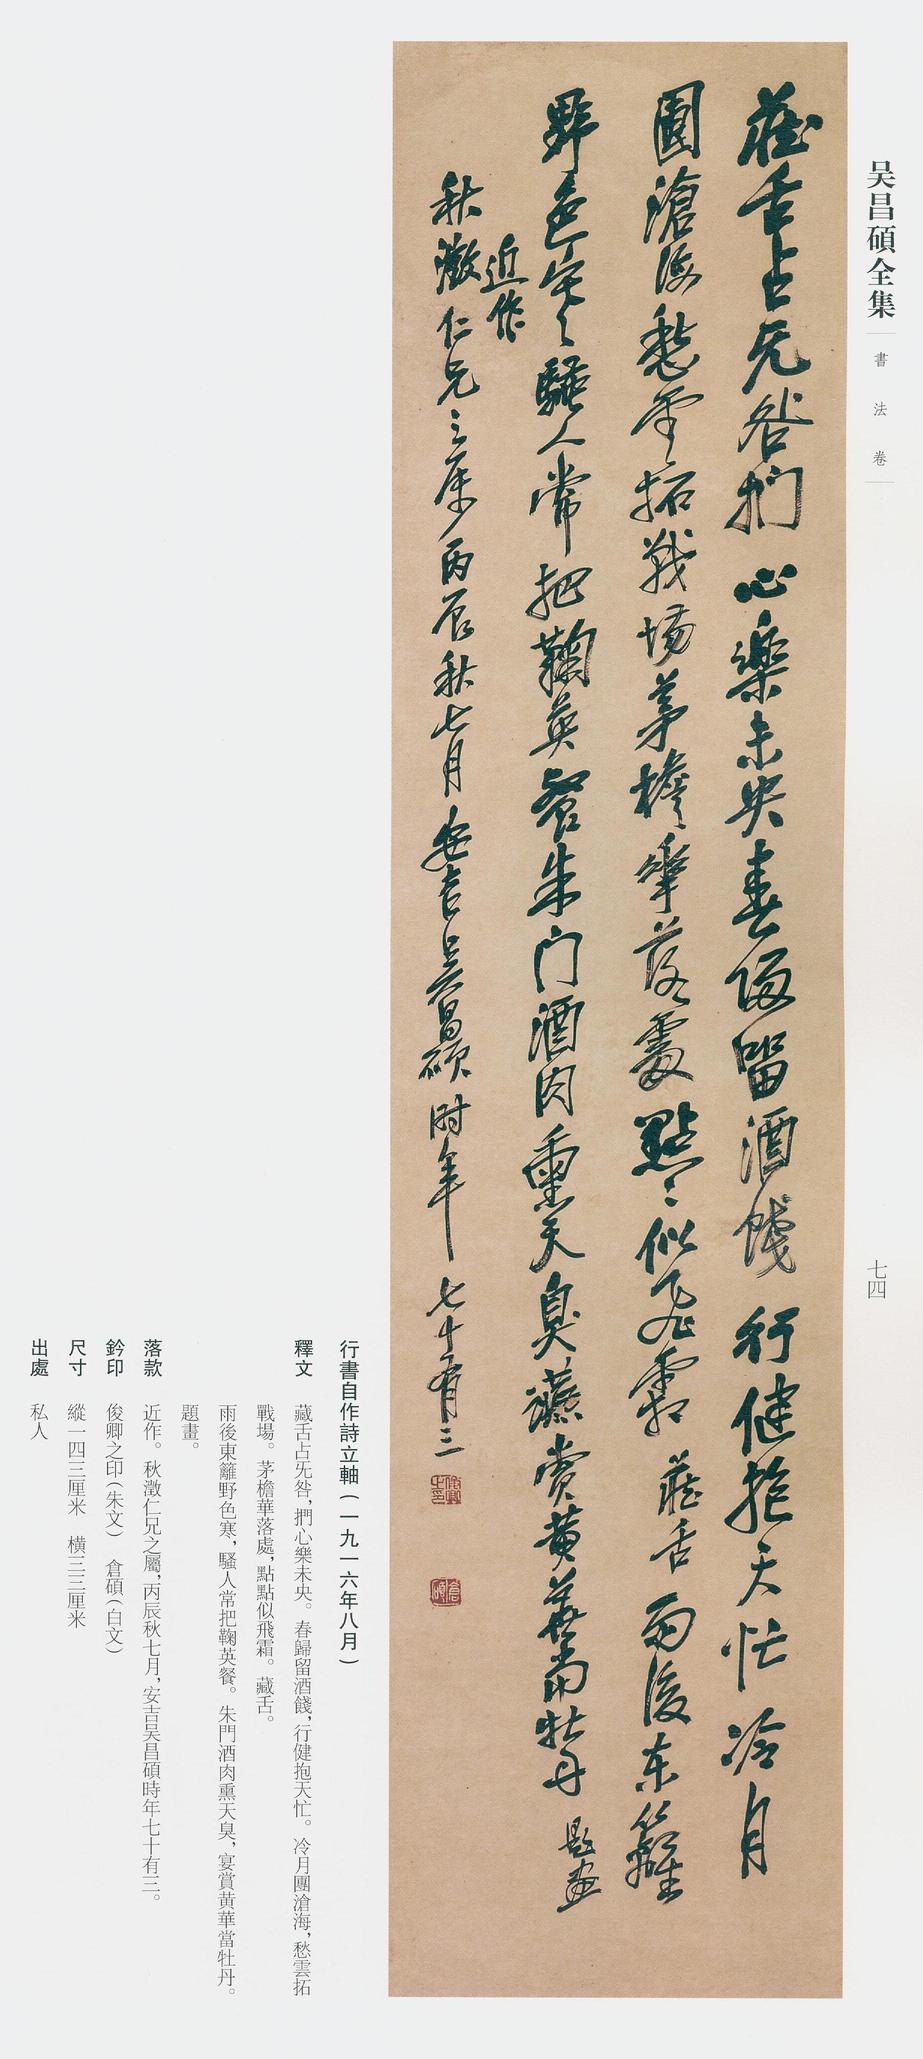 吴昌碩全集
書法卷
七四
藏舌占旡咎捫心樂未央春歸留酒餞行健抱天忙冷月
團滄海愁雲拓戰場茅檐華落處點點似飛霜藏舌雨後东籬
野色寒騷人常把鞠英餐朱门酒肉熏天臭讌赏黄華當牡丹題畫
近作
秋澂仁兄之属丙辰秋七月安吉吴昌碩时年七十有三
俊卿之印
倉碩
行書自作詩立軸(一九一六年八月)
釋文 藏舌占旡咎,捫心樂未央。春歸留酒餞,行健抱天忙。冷月團滄海,愁雲拓
戰場。茅檐華落處,點點似飛霜。藏舌。
雨後東籬野色寒,騷人常把鞠英餐。朱門酒肉熏天臭,宴賞黄華當牡丹。
題畫。
落款 近作。秋澂仁兄之屬,丙辰秋七月,安吉吴昌碩時年七十有三。
鈐印 俊卿之印(朱文) 倉碩(白文)
尺寸 縱一四三厘米 橫三三厘米
出處 私人